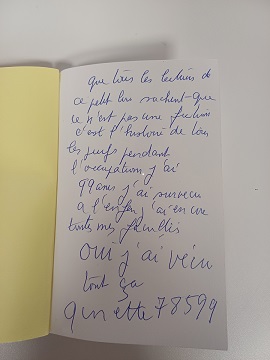 que tous les lecteurs de
ce petit livre sachent que
ce n'est pas une fiction
c'est l'histoire de tous
les juifs pendant
l'occupation j'ai
99 ans j'ai survécu
a l'enfer j'ai encore
toutes mes facultés
oui j'ai vécu
tout ça
ginette 78599